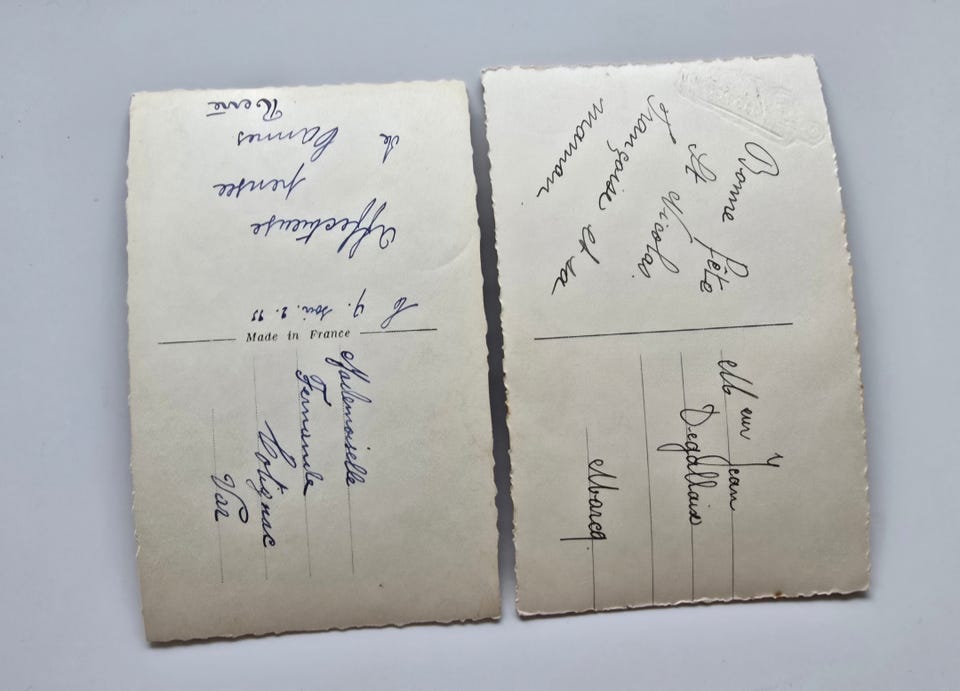 Affectueuse
pensée
de
Cannes
René
Made in France
Mademoiselle
Fernande
Var
Bonne fête
St Nicolas
Françoise et sa
maman
Meur Jean
Degallaix
Marcq